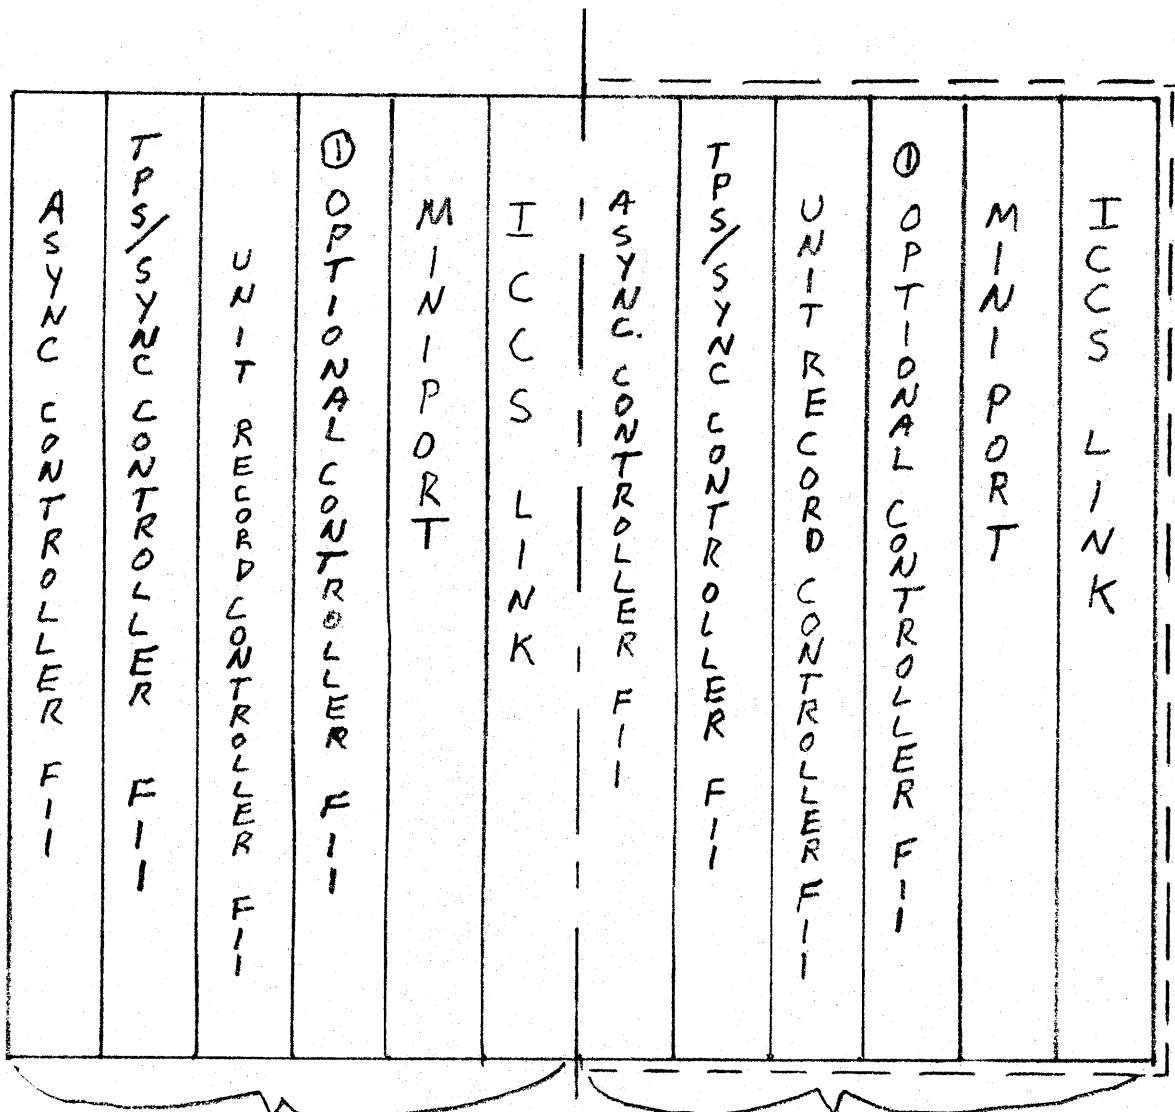 ASYNC CONTROLLER FII
TPS/SYNC CONTROLLER FII
UNIT RECORD CONTROLLER FII
① OPTIONAL CONTROLLER FII
MINIPORT
ICCS LINK
ASYNC. CONTROLLER FII
TPS/SYNC CONTROLLER FII
UNIT RECORD CONTROLLER FII
① OPTIONAL CONTROLLER FII
MINIPORT
ICCS LINK